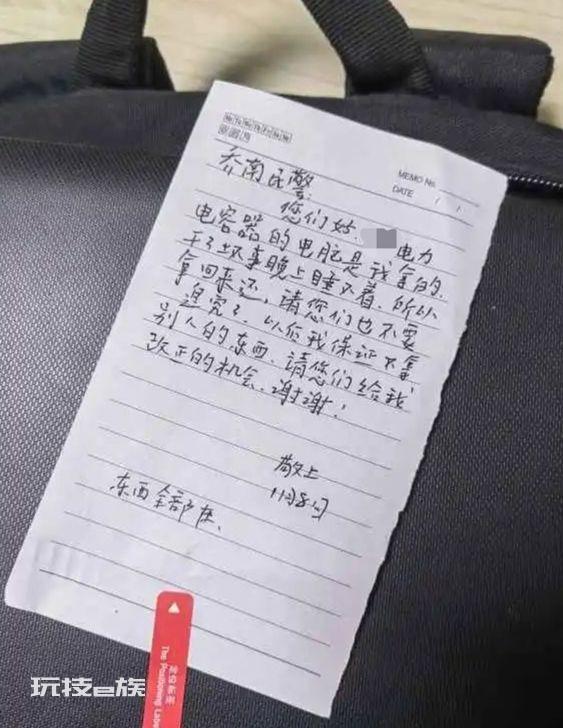 MEMO No.
DATE / /
乔南民警:
您们好. 电力
电容器的电脑是我拿的.
干了坏事晚上睡不着.所以
拿回来还,请您们也不要
追究了 以后我保证不拿
别人的东西.请您们给我
改正的机会、谢谢!
敬上
11月8日
东西全部在.
The Positioning Label
玩技e族